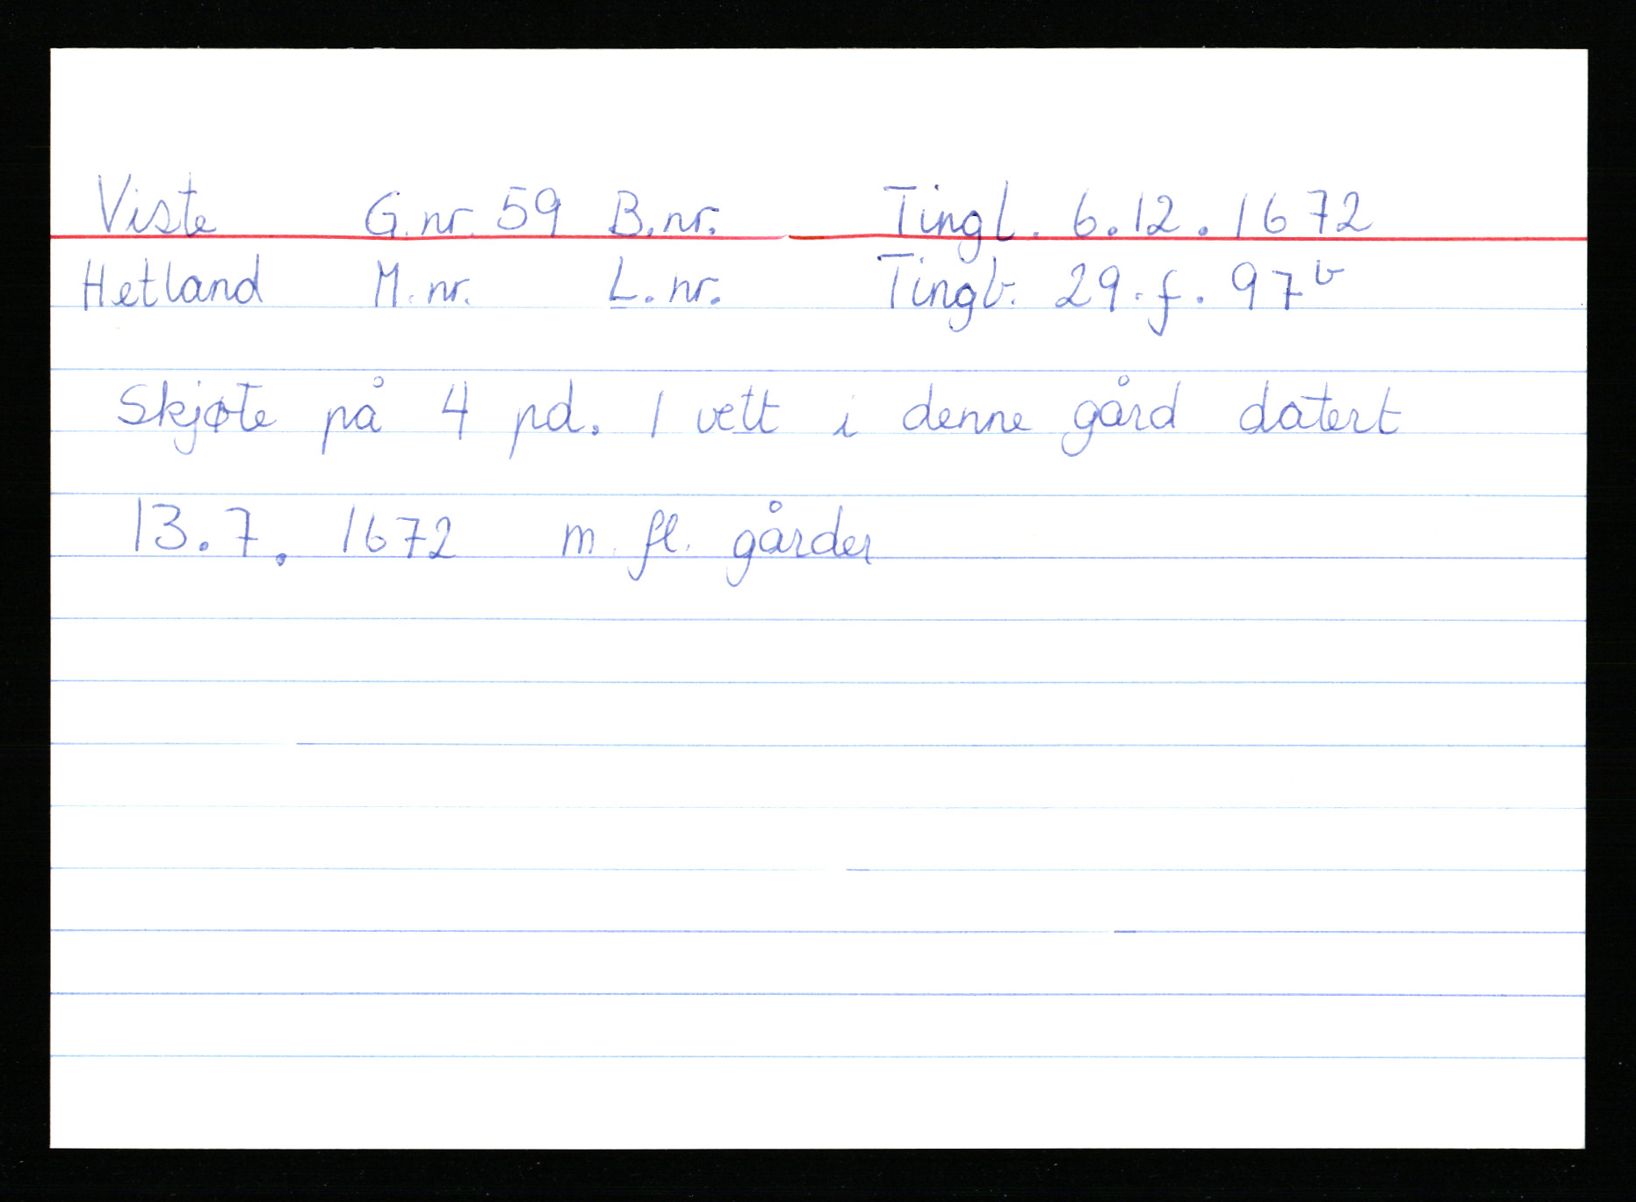 Viste G.nr. 59 B.nr. Tingl. 6.12.1672
Hetland M.nr. L.nr. Tingb. 29.f.97b
Skjøte på 4 pd. 1 vett i denne gård datert
13.7. 1672 m. fl. gårder